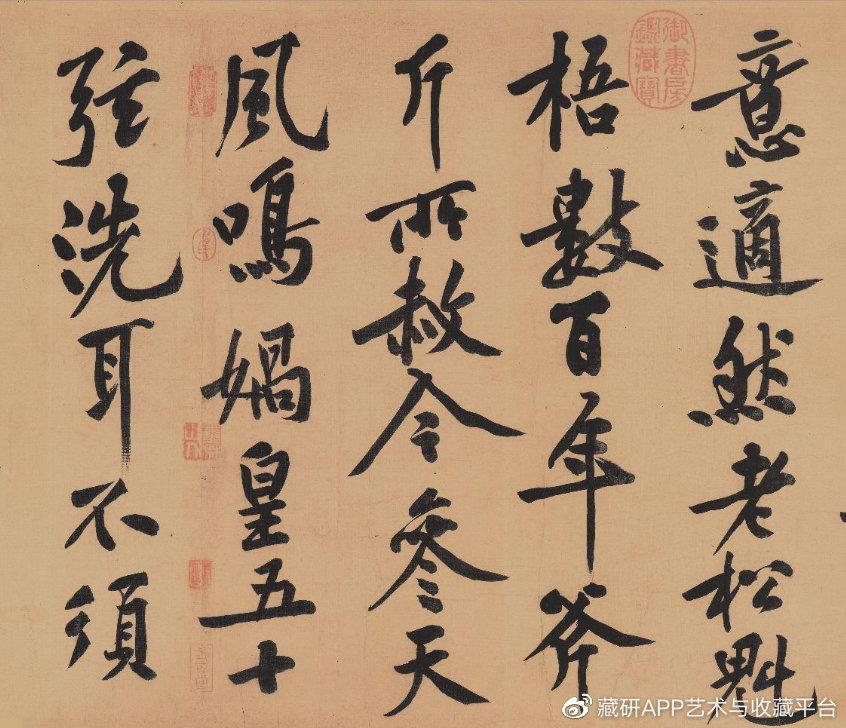 意適然老松魁
梧數百年斧
斤所赦今參天
風鳴媧皇五十
弦洗耳不須
御書房
鑑藏寶
藏研APP艺术与收藏平台